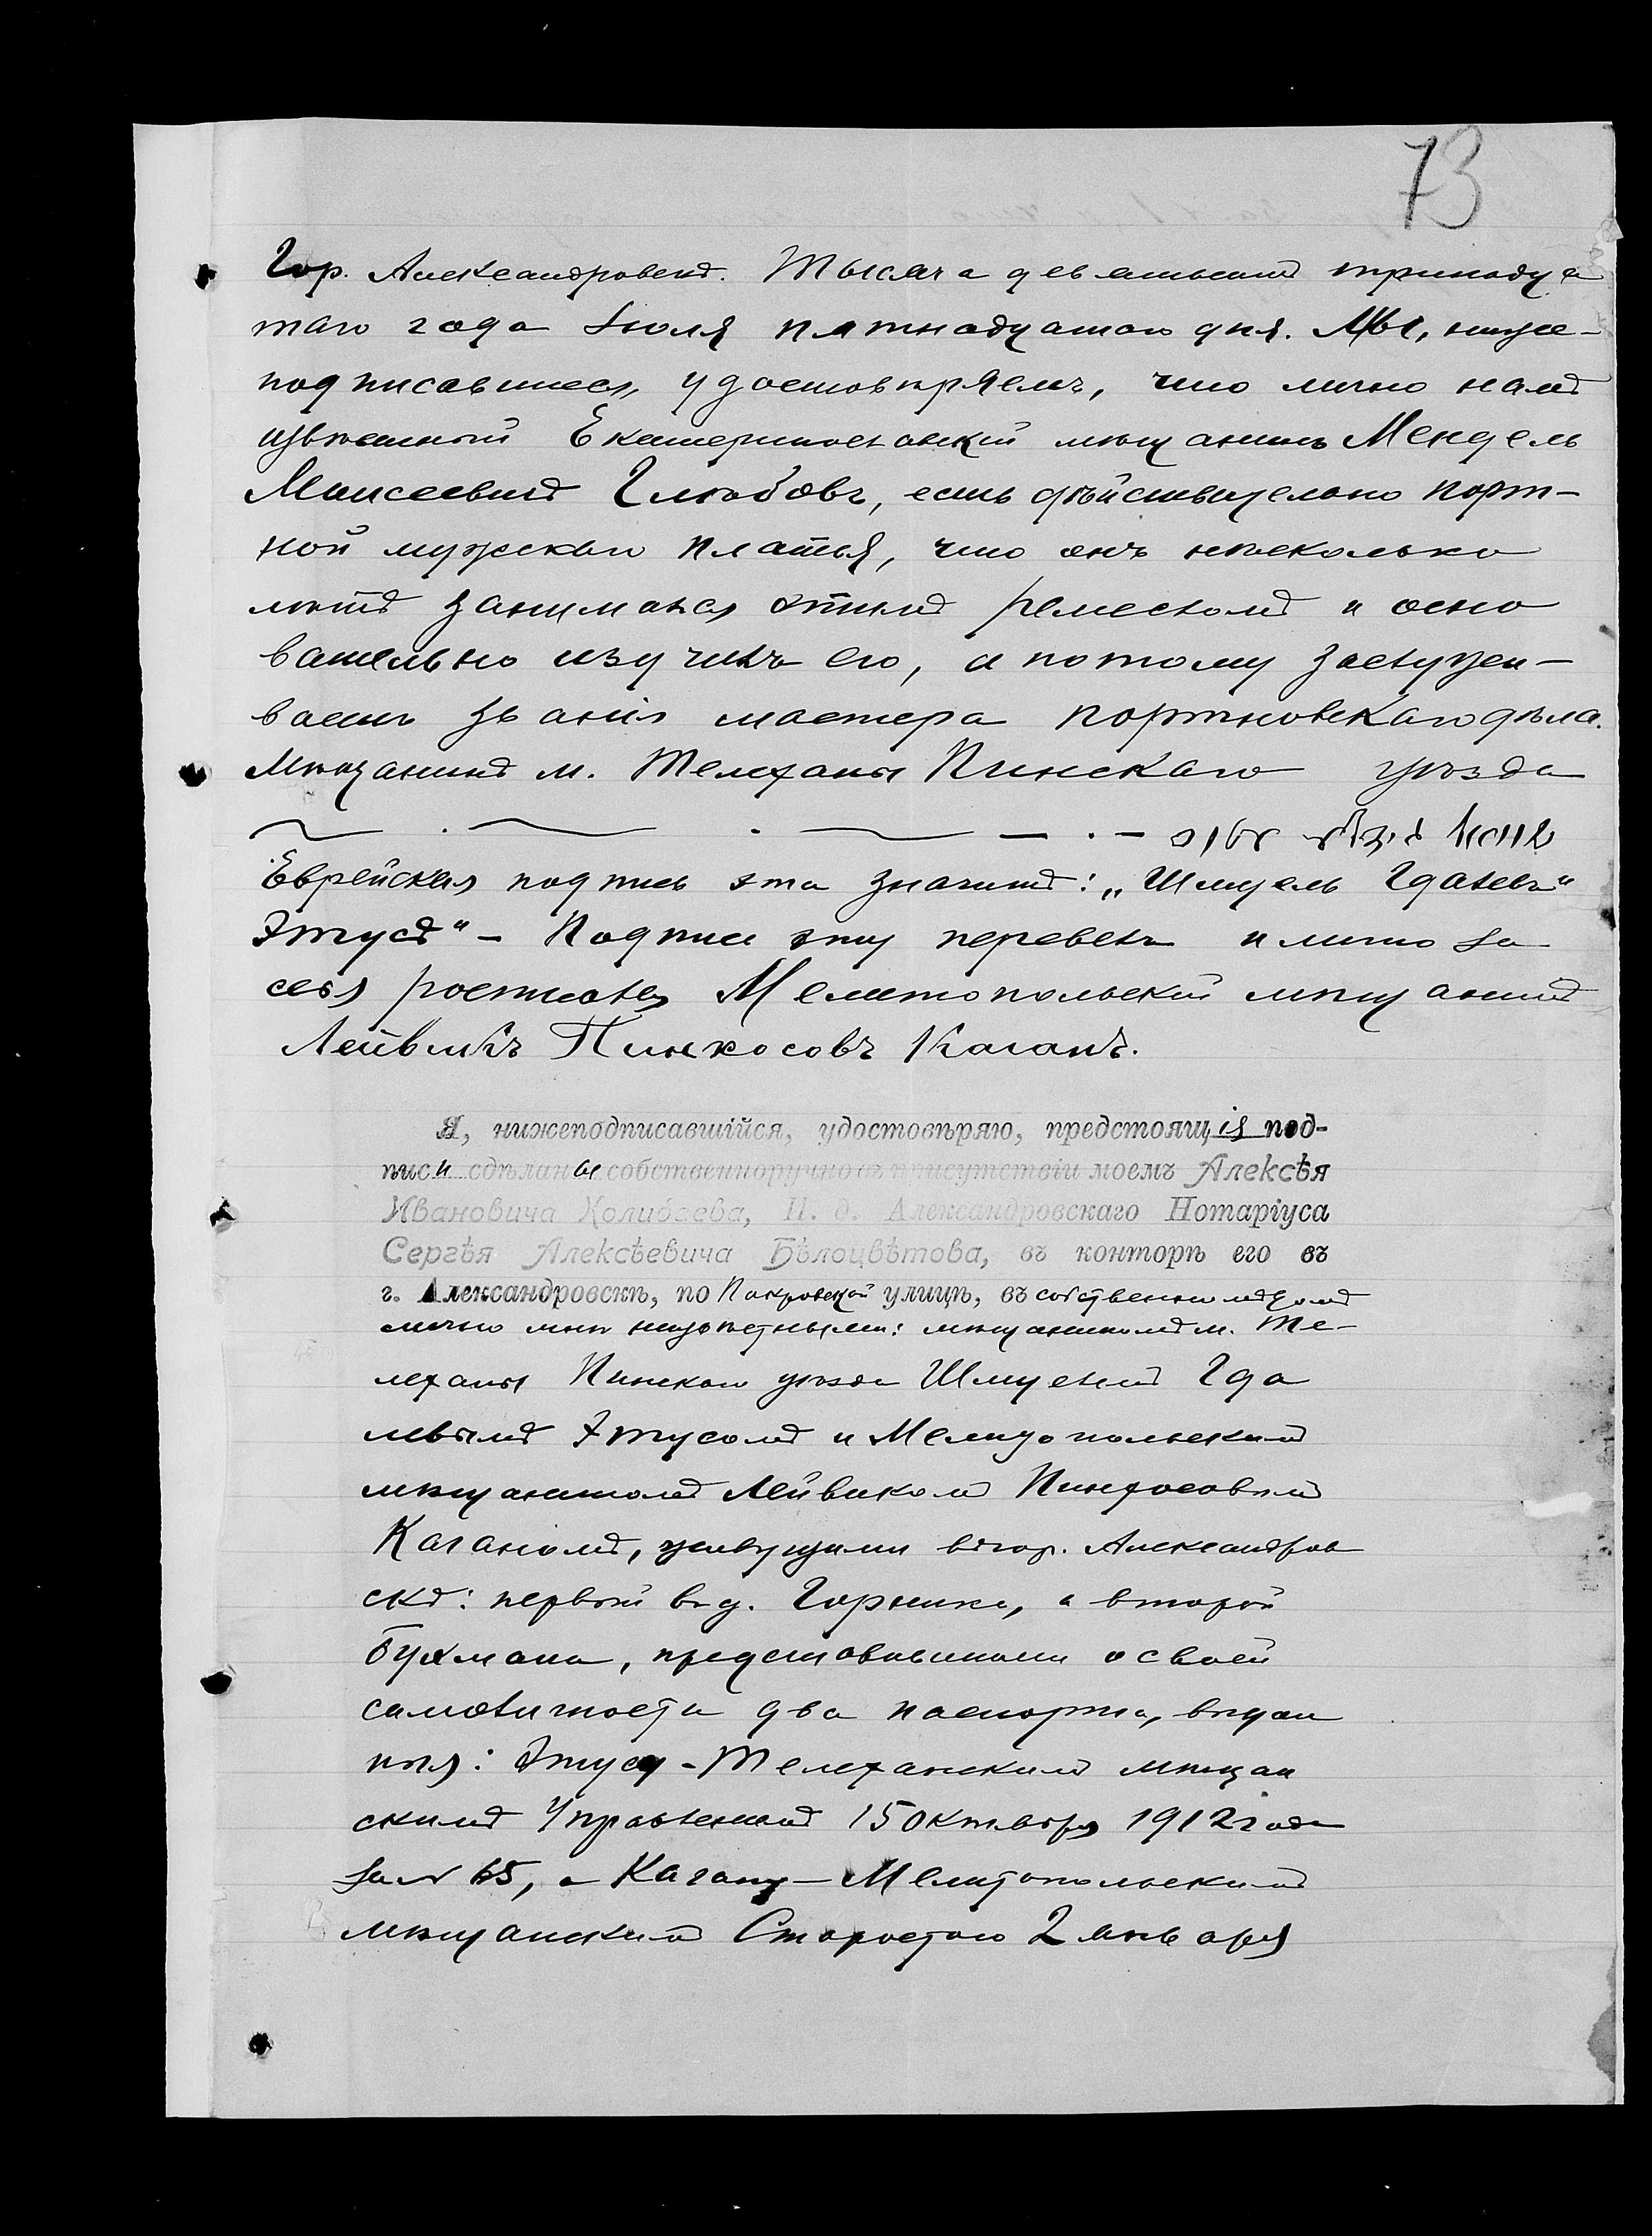 73
Гор. Александровскъ. Тысяча девятьсотъ тринадца
таго года Іюля пятнадцатаго дня. Мы, ниже-
подписавшіеся, удостовѣряемъ, что лично намъ
извѣстный Екатеринославскій мѣщанинъ Мендель
Моисеевичъ Глюбовъ, есть дѣйствительно порт-
ной мужскаго платья, что онъ нѣсколько
лѣтъ занимался этимъ ремесломъ и осно
вательно изучилъ его, а потому заслужи-
ваетъ званія мастера портновскаго дѣла.
Мѣщанинъ м. Телеханы Пинскаго уѣзда
Еврейская подпись эта значитъ: „Шмуель Гдалевъ"
Этусъ" – Подпись эту перевелъ и лично за
себя росписался Мелитопольскій мѣщанинъ
Лейвикъ Пинхосовъ Каганъ.
Я, нижеподписавшійся, удостовѣряю, предстоящія под-
писи сдѣланы собственноручно въ присутствіи моемъ Алексѣя
Ивановича Колибаева, И. д. Александровскаго Нотаріуса
Сергѣя Алексѣевича Бѣлоцвѣтова, въ конторѣ его въ
г. Александровскѣ, по Покровской улицѣ, въ собственномъ домѣ
лично мнѣ неизвѣстными: мѣщаниномъ м. Те-
леханы Пинскаго уѣзда Шмуелемъ Гда
левымъ Этусомъ и Мелитопольскимъ
мѣщаниномъ Лейвикомъ Пинхосовымъ
Каганомъ, живущими въ гор. Александров
скѣ: первый въ д. Горника, а второй
Бухмана, представившими о своей
самоличности два паспорта, выдан
ныя: Этусу – Телеханскимъ мѣщан
скимъ Управленіемъ 15 Октября 1912 года
за № 65, а Кагану – Мелитопольскимъ
мѣщанскимъ Старостою 2 Января